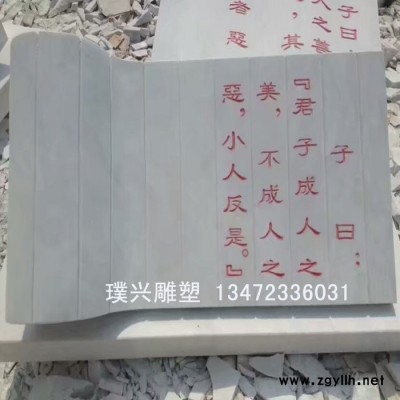 子曰：
『君子成人之
美，不成人之
惡，小人反是。』
子曰：
人之善
，其
者惡
璞兴雕塑 13472336031
www.zgyllh.net